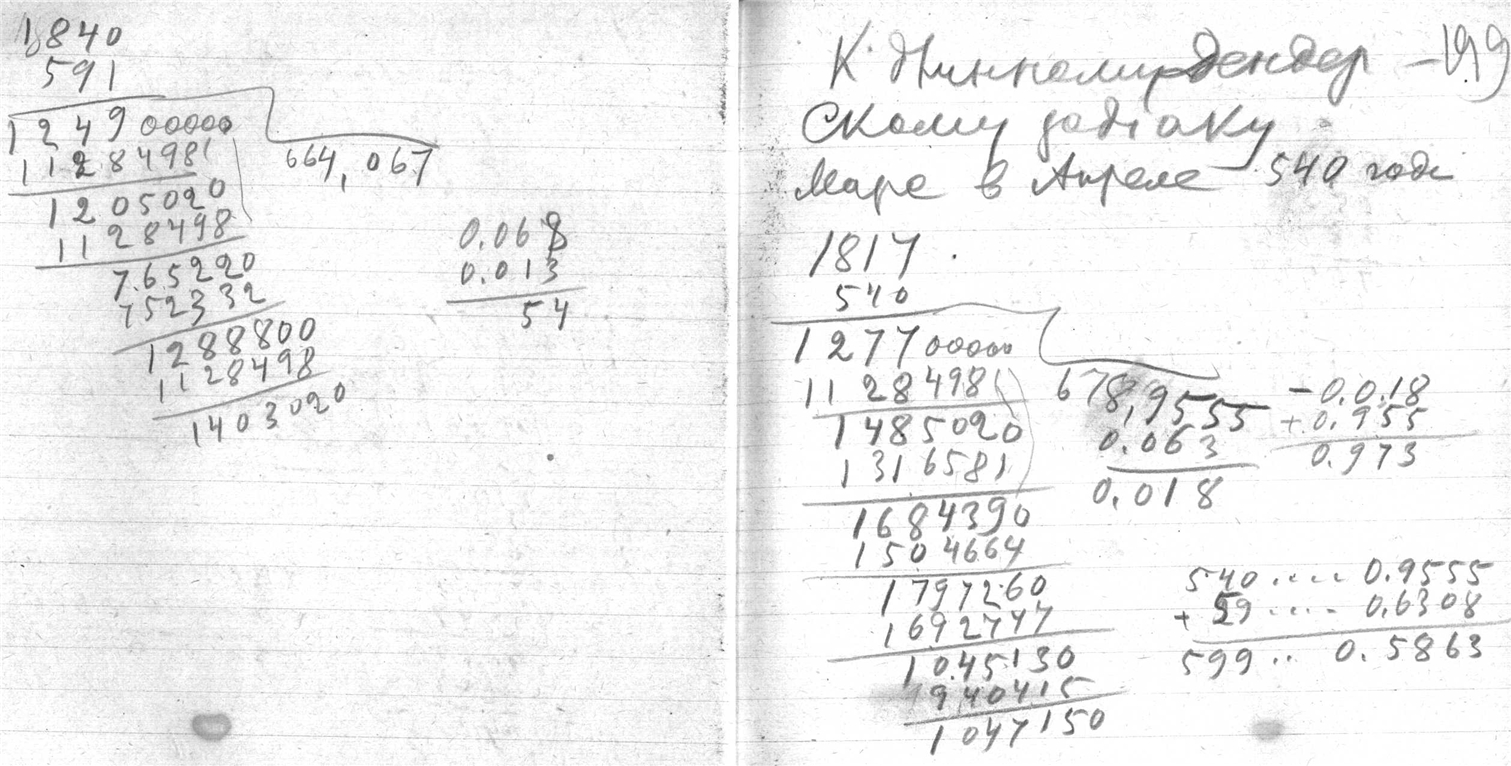 1840
591
124900000
11284981
1205020
1128498
765220
752332
1288800
1128498
1403020
664,067
0.068
0.013
54
К дендер – 199
скому зодiаку
Марс в Апреле 540 года
1817
540
127700000
11284981
1485020
1316581
1684390
1504664
1797260
1692747
1045130
940415
1047150
678,9555
0.063
0.018
– 0.018
+ 0.955
0.973
540 .... 0.9555
+ 59 .... 0.6308
599 .. 0.5863